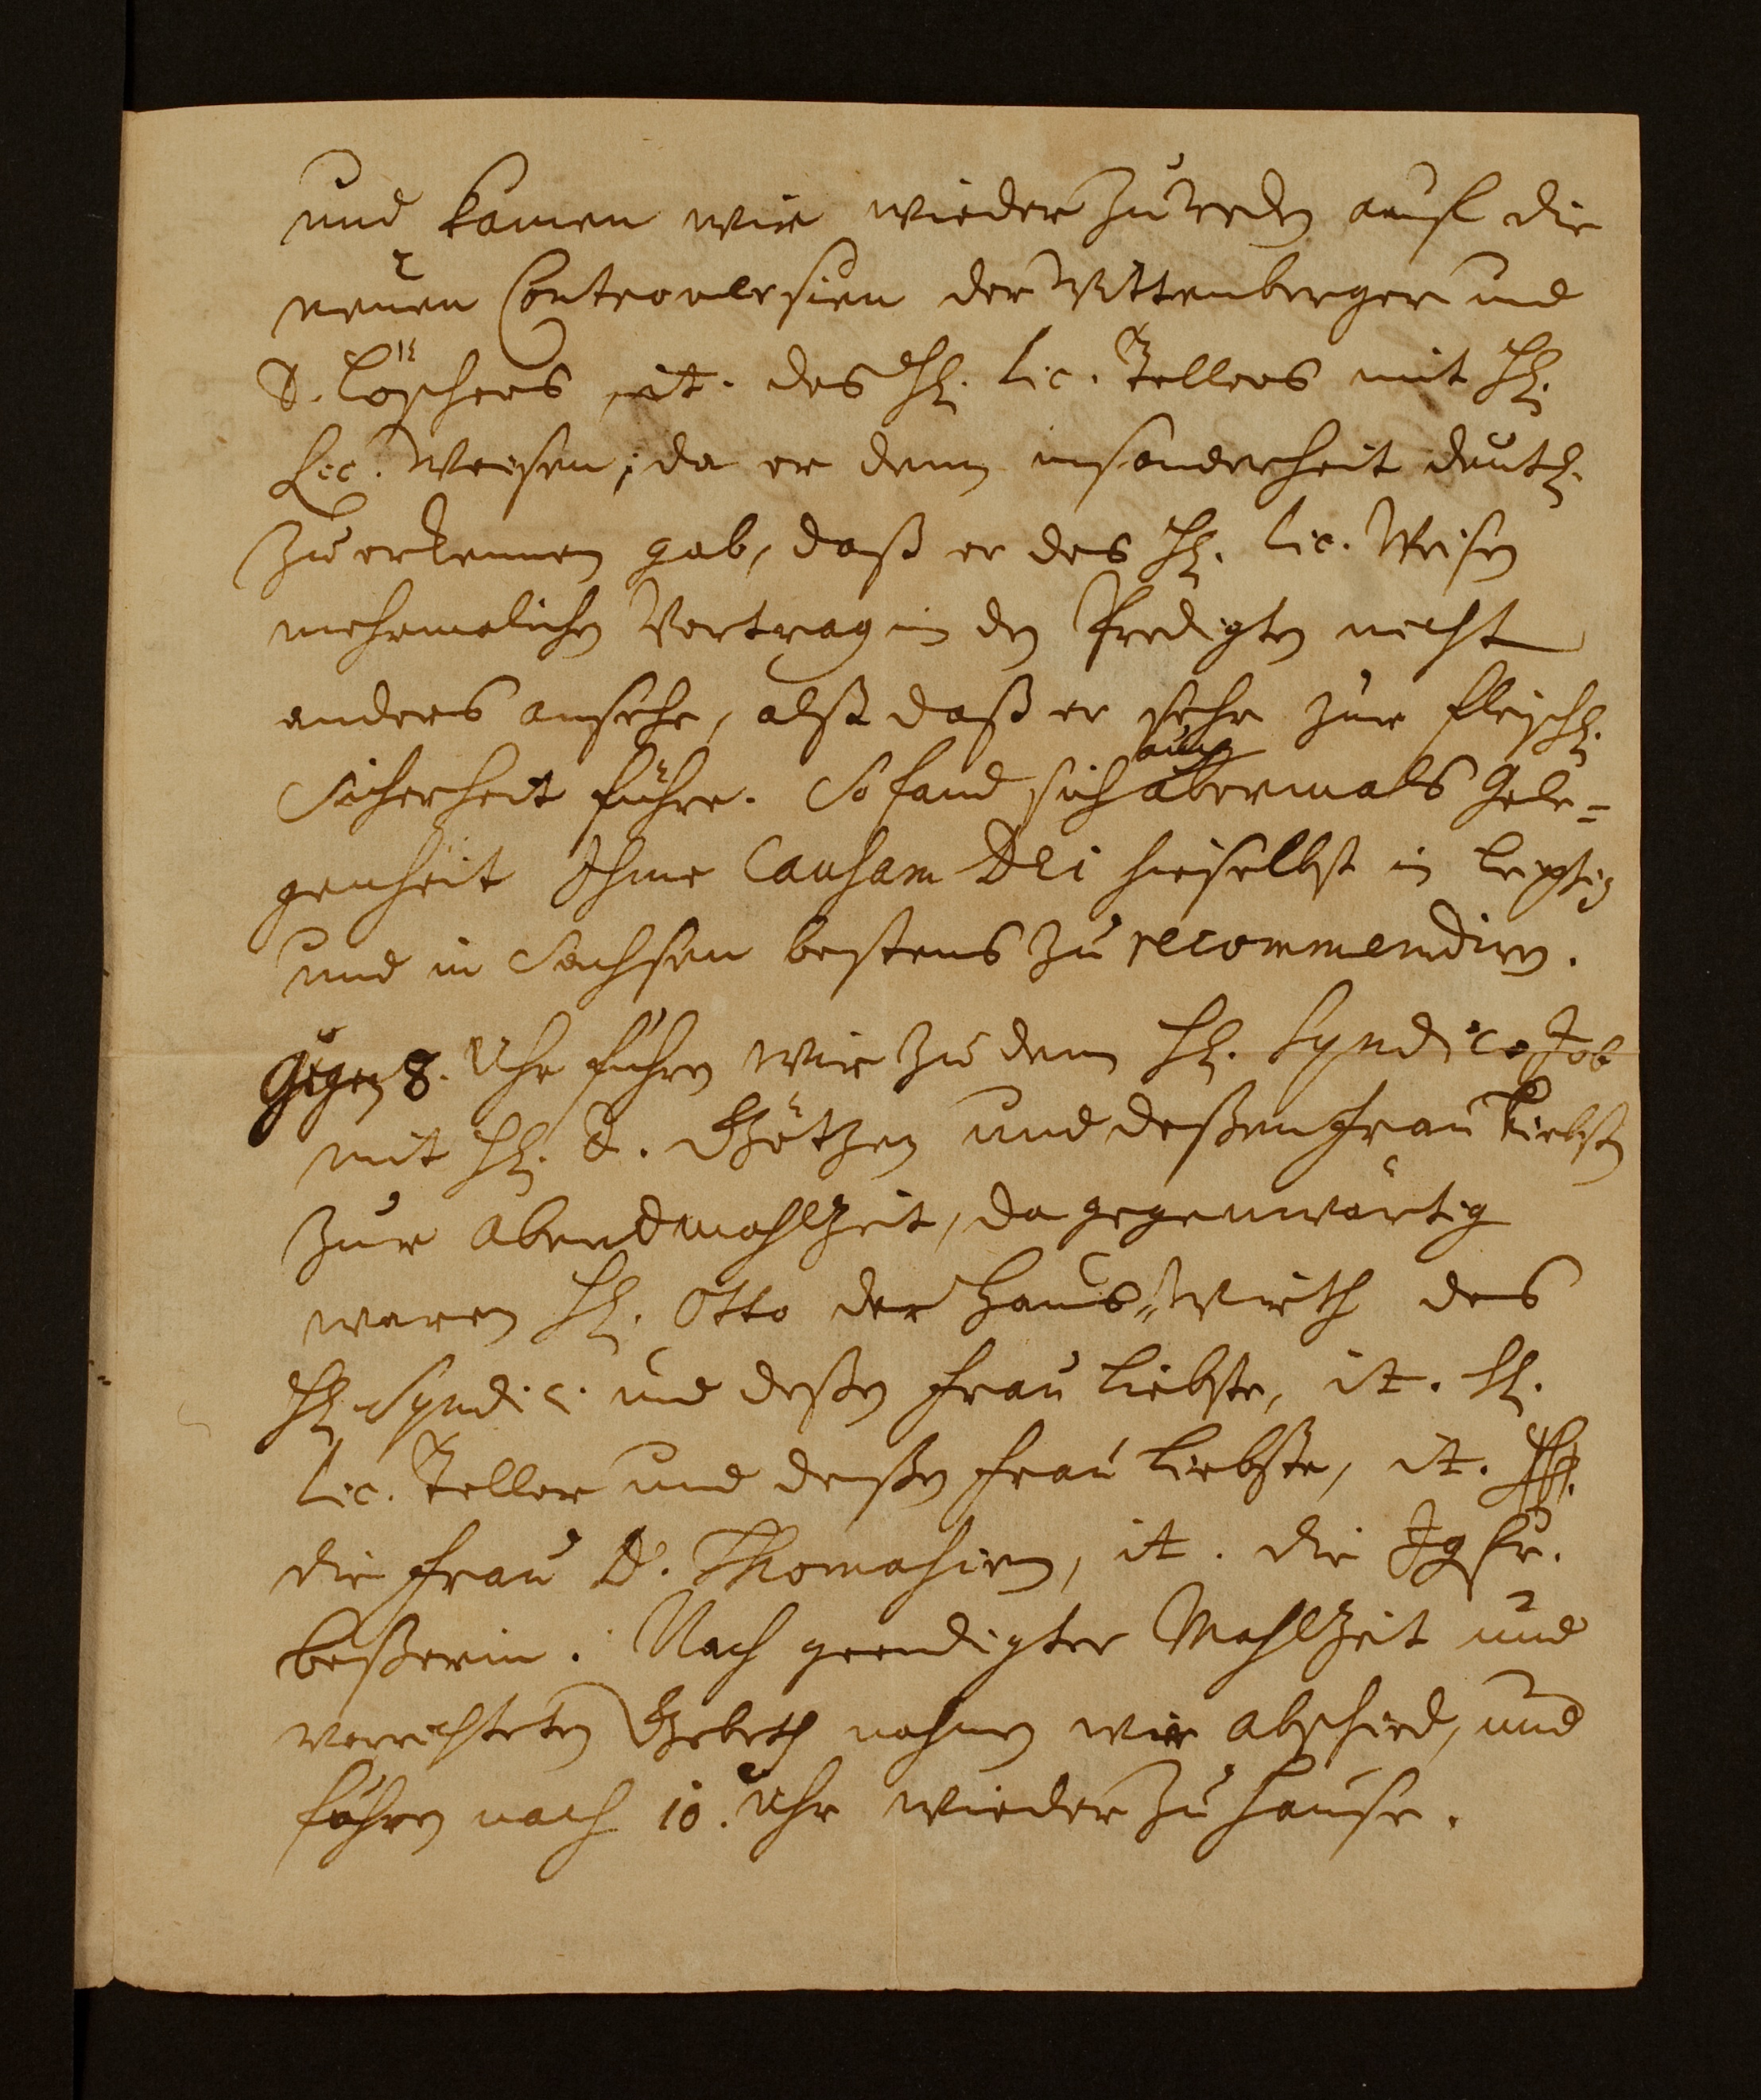 und kamen wir wieder zu reden auf die
neuen Controversien der Wittenberger und
D. Löschers, it. des H. Lic. Tellers mit H.
Lic. Weisen; da er denn insonderheit deutl.
zu erkennen gab, daß er des H. Lic. Weisen
mehrmalichen Vortrag in den Predigten nicht
anders ansehe, alß daß er sehr zur fleischl.
Sicherheit führe. So fand sich auch abermals Gele=
genheit Ihme Causam Dei hieselbst in Leipzig
und in Sachsen bestens zu recommendiren.
Gegen 8. Uhr fuhren wir zu dem H. Syndico Job
mit H. D. Götzen und deßen Frau Liebsten
zur Abendmahlzeit, da gegenwärtig
waren H. Otto der Hauß-Wirth des
H. Syndici. und deßen Frau Liebste, it. H.
Lic. Teller und deßen Frau Liebste, it.
die Frau D. Thomasien, it. die Jgfr.
Beßerin. Nach geendigter Mahlzeit und
verrichteten Gebeth nahmen wir Abschied, und
fuhren nach 10. Uhr wieder zu Hause.